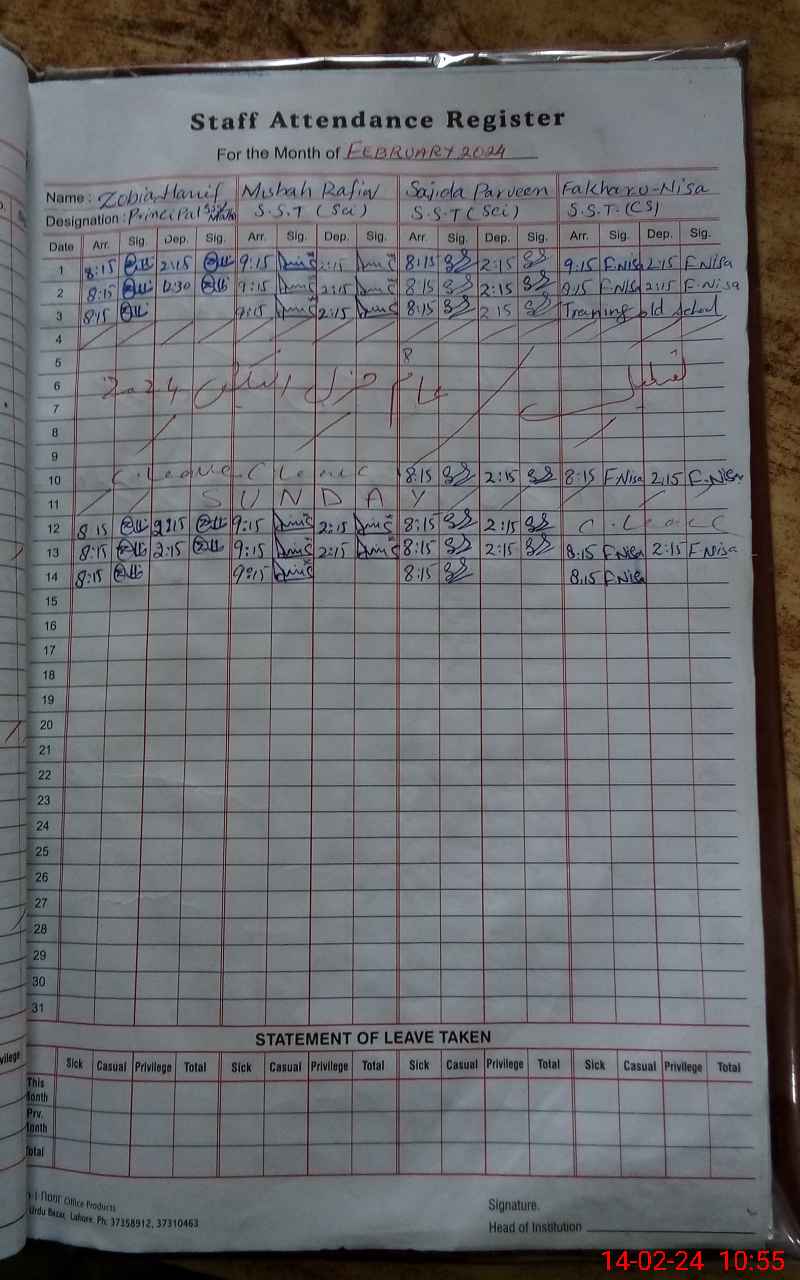 Staff Attendance Register
For the Month of FEBRUARY 2024
Name : Zobia Hanif Misbah Rafiq Sajida Parveen Fakharu-Nisa
Designation : Principal S.S.T (Sci) S.S.T (Sci) S.S.T. (CS)
Date Arr. Sig. Dep. Sig. Arr. Sig. Dep. Sig. Arr. Sig. Dep. Sig. Arr. Sig. Dep. Sig.
1 8:15 2:15 9:15 2:15 8:15 2:15 9:15 F.Nisa 2:15 F.Nisa
2 8:15 12:30 9:15 2:15 8:15 2:15 8:15 F.Nisa 2:15 F.Nisa
3 8:15 9:15 2:15 8:15 2:15 Training old school
4
5
6 عام جنرل الیکشن 2024 تعطیل
7
8
9
10 C.Leave C Leave 8:15 2:15 8:15 F.Nisa 2:15 F.Nisa
11 SUNDAY
12 8:15 2:15 9:15 2:15 8:15 2:15 C.Leave
13 8:15 2:15 9:15 2:15 8:15 2:15 8:15 F.Nisa 2:15 F.Nisa
14 8:15 9:15 8:15 8:15 F.Nisa
15
16
17
18
19
20
21
22
23
24
25
26
27
28
29
30
31
STATEMENT OF LEAVE TAKEN
Sick Casual Privilege Total Sick Casual Privilege Total Sick Casual Privilege Total Sick Casual Privilege Total
This Month
Prv. Month
Total
Office Products
Urdu Bazar, Lahore. Ph: 37358912, 37310463
Signature.
Head of Institution
14-02-24 10:55